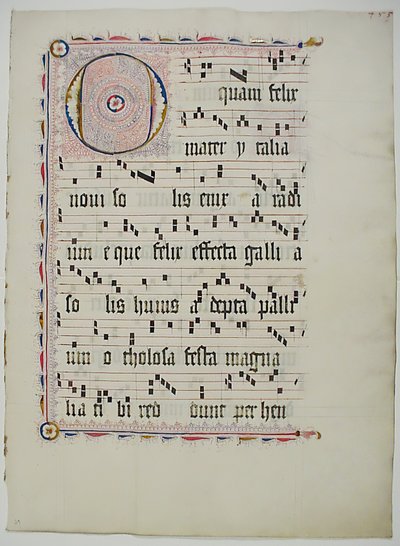 O quam felix
mater ytalia
noui so lis enix a radi
um eque felix effecta galli a
so lis huius adepta palli
um o tholosa festa magna
lia ti bi red dunt per hen